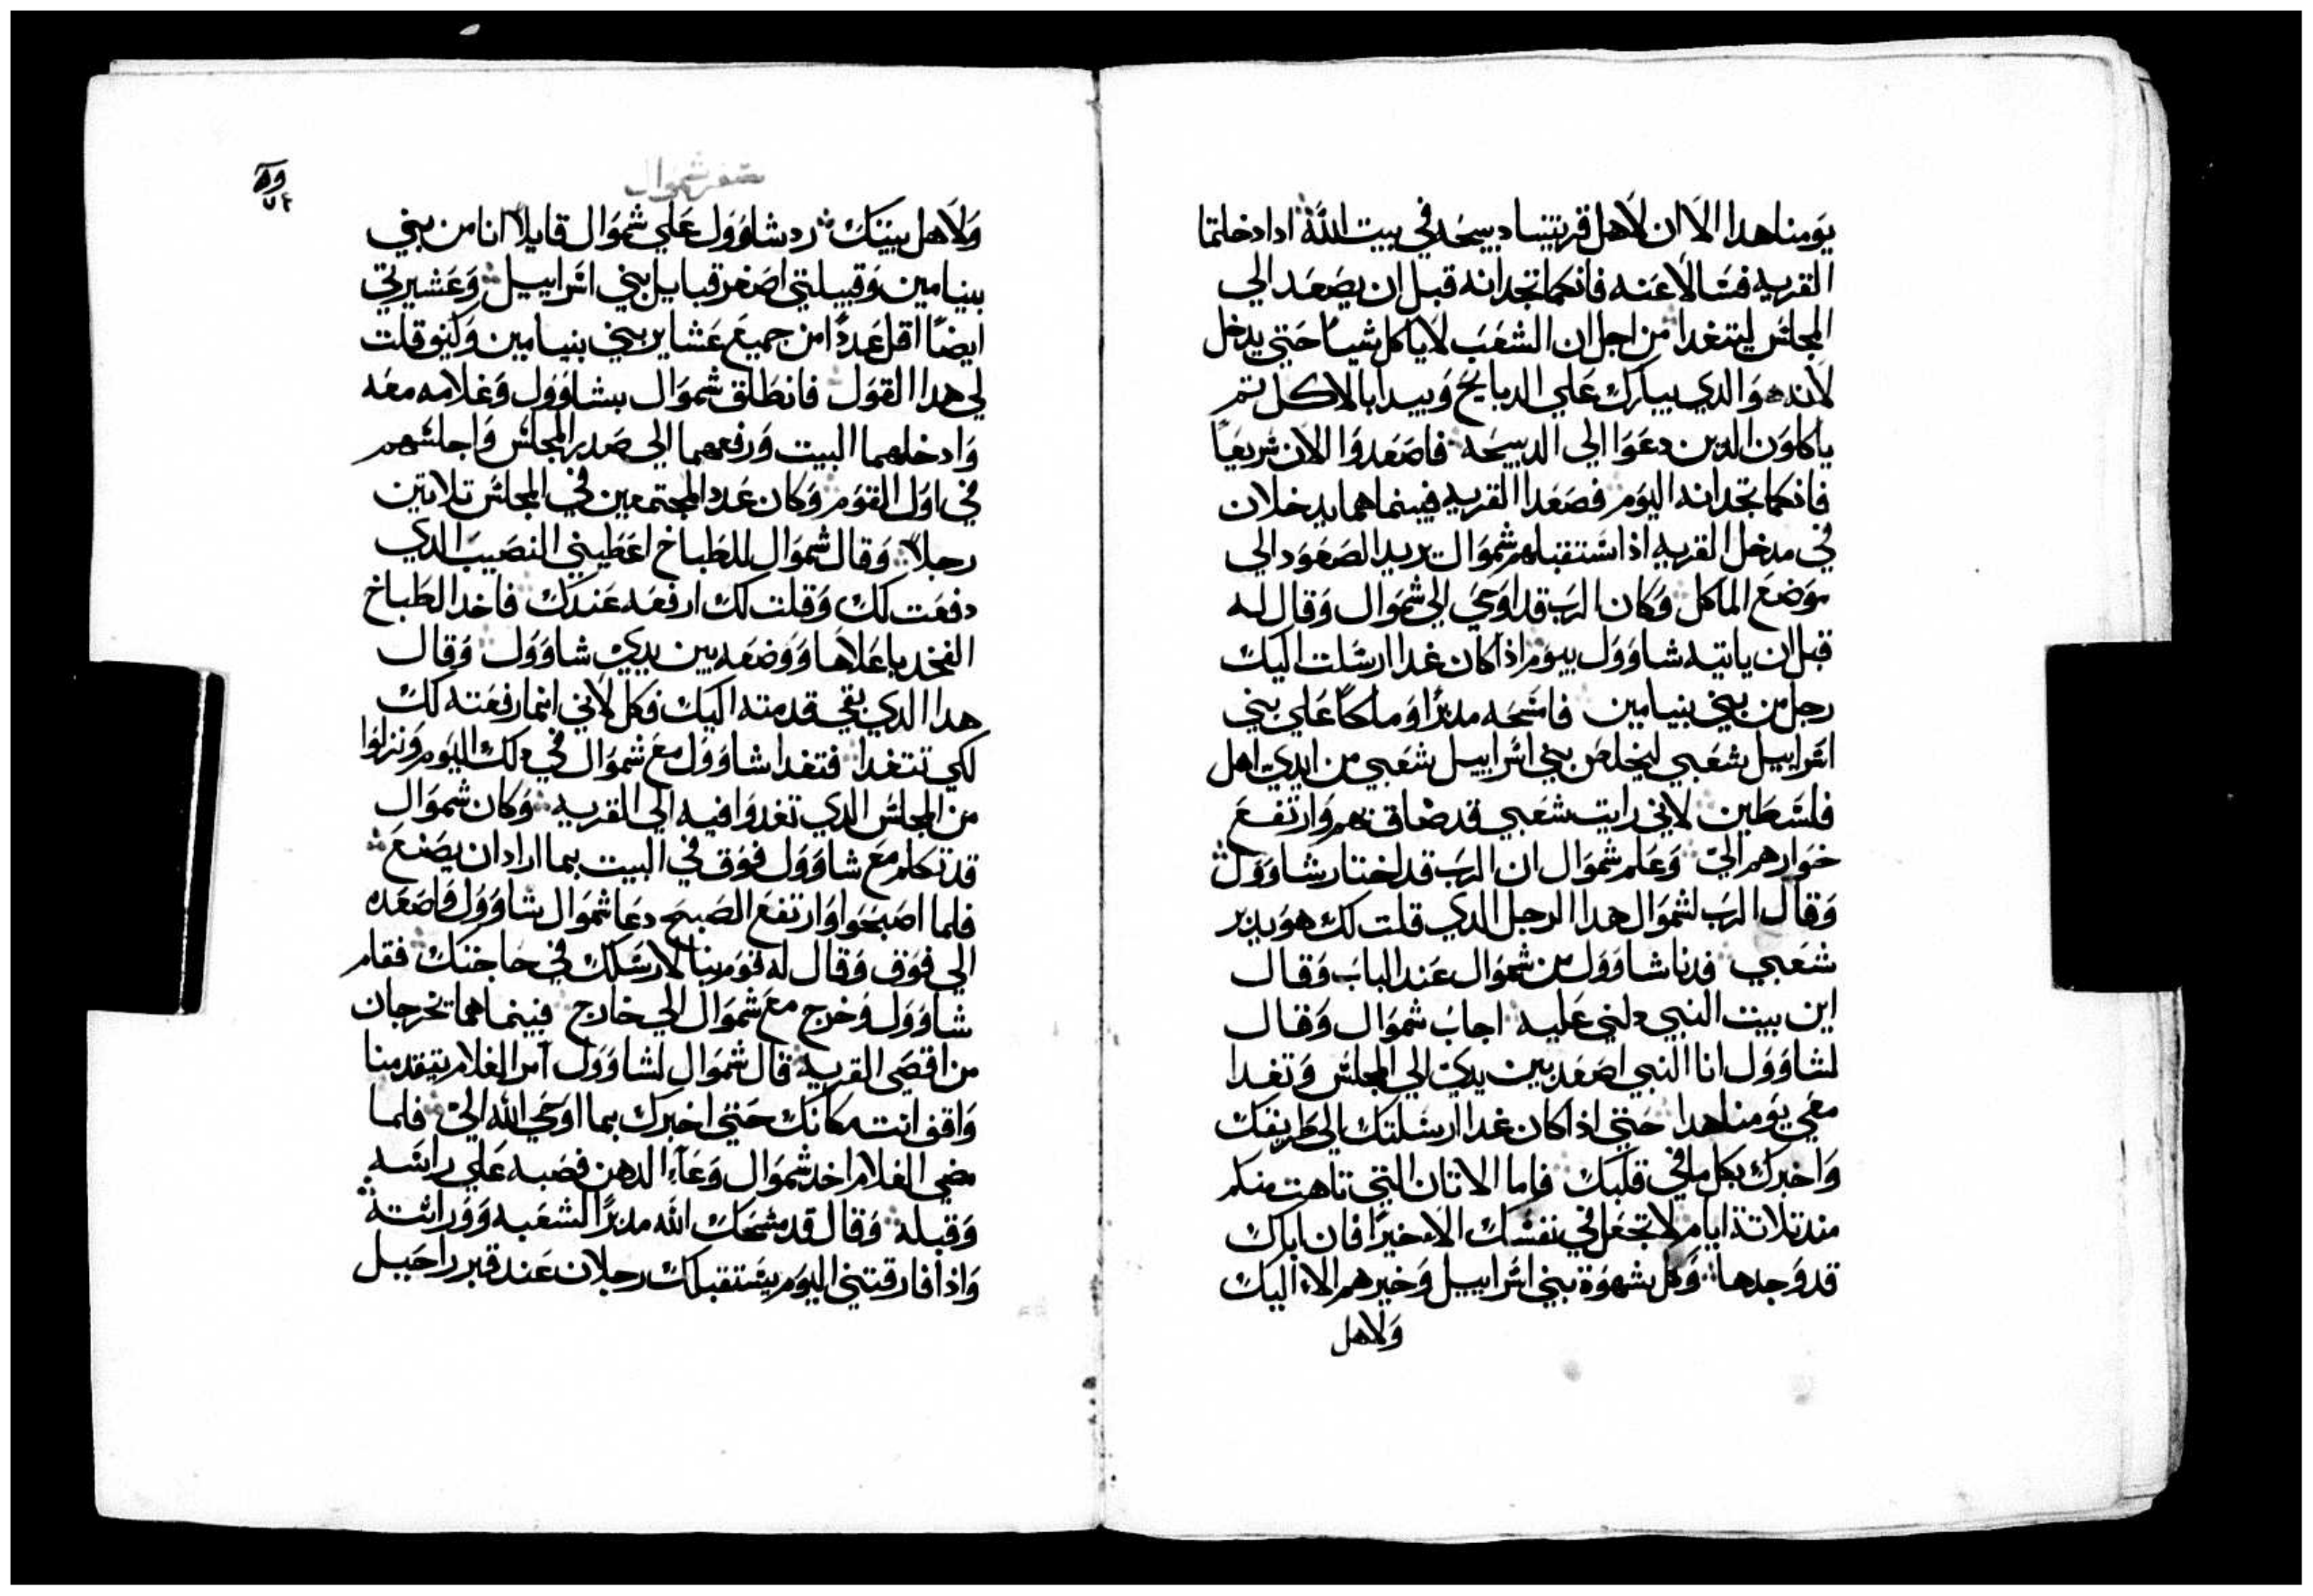 يومنا هدا الا ان لاهل قريتنا دبيحه في بيت الله ادا دخلتما
القريه فسالا عنه فانكما تجدانه قبل ان يصعد الي
المجلس ليتغدا من اجل ان الشعب لا ياكل شيا حتي يدخل
لانه هو الدي يبارك علي الدبايح ويبدا بالاكل تم
ياكلون الدين دعوا الي الدبيحه فاصعدوا الان سريعا
فانكما تجدانه اليوم فصعدا القريه فبينما هما يدخلان
في مدخل القريه اذا استقبلهم شموال يريد الصعود الي
موضع الماكل وكان الرب قد اوحي الي شموال وقال له
قبل ان ياتيه شاوول بيوم اذا كان غدا ارسلت اليك
رجل من بني بنيامين فامسحه مدبرا وملكا علي بني
اسراييل شعبي ليخلص بني اسراييل شعبي من ايدي اهل
فلسطين لاني رايت شعبي قد ضاق بهم وارتفع
خوارهم الي وعلم شموال ان الرب قد اختار شاوول
وقال الرب لشموال هدا الرجل الدي قلت لك هو يدبر
شعبي فدنا شاوول من شموال عند الباب وقال
اين بيت النبي دلني عليه اجاب شموال وقال
لشاوول انا النبي اصعد بين يدي الي المجلس وتغدا
معي يومنا هدا حتي اذا كان غدا ارسلتك الي طريقك
واخبرك بكل ما في قلبك فاما الاتان التي تاهت منكم
مند تلاتة ايام لا تجعل في نفسك الا خيرا فان اباك
قد وجدها وكل شهوة بني اسراييل وخيرهم الا اليك
ولاهل
سفر شموال
ولاهل بيتك رد شاوول علي شموال قايلا انا من بني
بنيامين وقبيلتي اصغر قبايل بني اسراييل وعشيرتي
ايضا اقل عددا من جميع عشاير بني بنيامين وكيف قلت
لي هدا القول فانطلق شموال بشاوول وغلامه معه
وادخلهما البيت ورفعهما الي صدر المجلس واجلسهم
في اول القوم وكان عدد المجتمعين في المجلس تلاتين
رجلا وقال شموال للطباخ اعطيني النصيب الدي
دفعت لك وقلت لك ارفعه عندك فاخد الطباخ
الفخد باعلاها ووضعه بين يدي شاوول وقال
هدا الدي بقي قدمته اليك فكل لاني انما رفعته لك
لكي تتغدا فتغدا شاوول مع شموال في دلك اليوم ونزلوا
من المجلس الدي تغدوا فيه الي القريه وكان شموال
قد تكلم مع شاوول فوق في البيت بما اراد ان يصنع
فلما اصبحوا وارتفع الصبح دعا شموال شاوول فاصعده
الي فوق وقال له قوم بنا لارسلك في حاجتك فقام
شاوول وخرج مع شموال الي خارج فبينما هما تخرجان
من اقصي القريه قال شموال لشاوول آمر الغلام يتقدمنا
واقف انت مكانك حتي اخبرك بما اوحي الله الي فلما
مضي الغلام اخد شموال وعآء الدهن فصبه علي راسه
وقبله وقال قد مسحك الله مدبرا لشعبه ووراتته
واذا فارقتني اليوم يستقبلك رجلان عند قبر راحيل